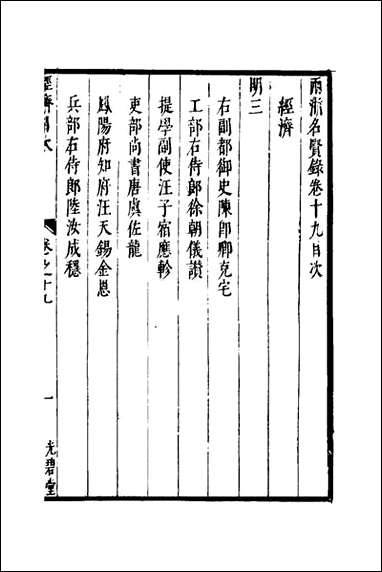 兩浙名賢錄卷十九目次
經濟
明三
右副都御史陳卽卿克宅
工部右侍郎徐朝儀讚
提學副使汪子宿應軫
吏部尚書唐虞佐龍
鳳陽府知府汪天錫金恩
兵部右侍郎陸汝成穩
經濟目次
卷之十九
一
光碧堂